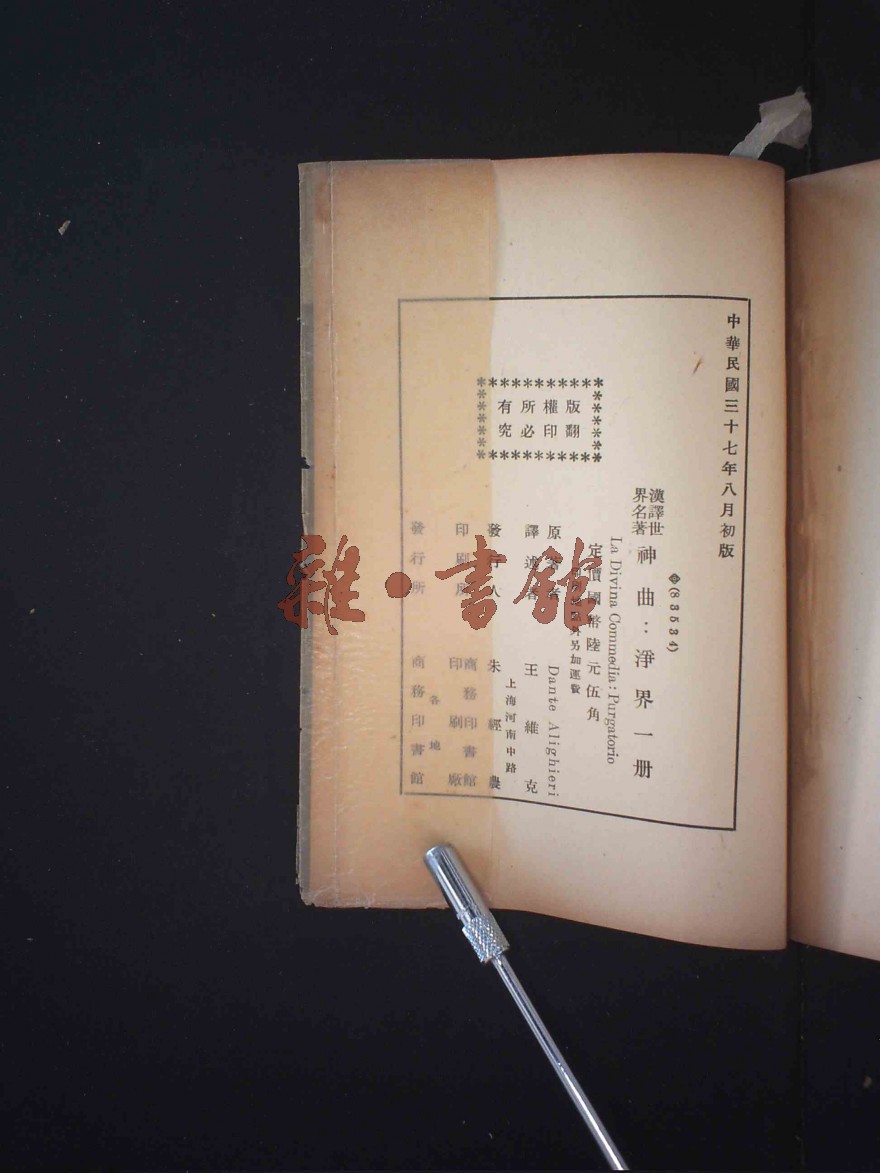 中華民國三十七年八月初版
(83534)
漢譯世界名著 神曲：淨界一册
La Divina Commedia: Purgatorio
定價國幣陸元伍角
外另加運費
原著者 Dante Alighieri
譯述者 王維克
上海河南中路
發行人 朱經農
印刷所 商務印書館印刷廠
各地
發行所 商務印書館
版權所有
翻印必究
雜·書館